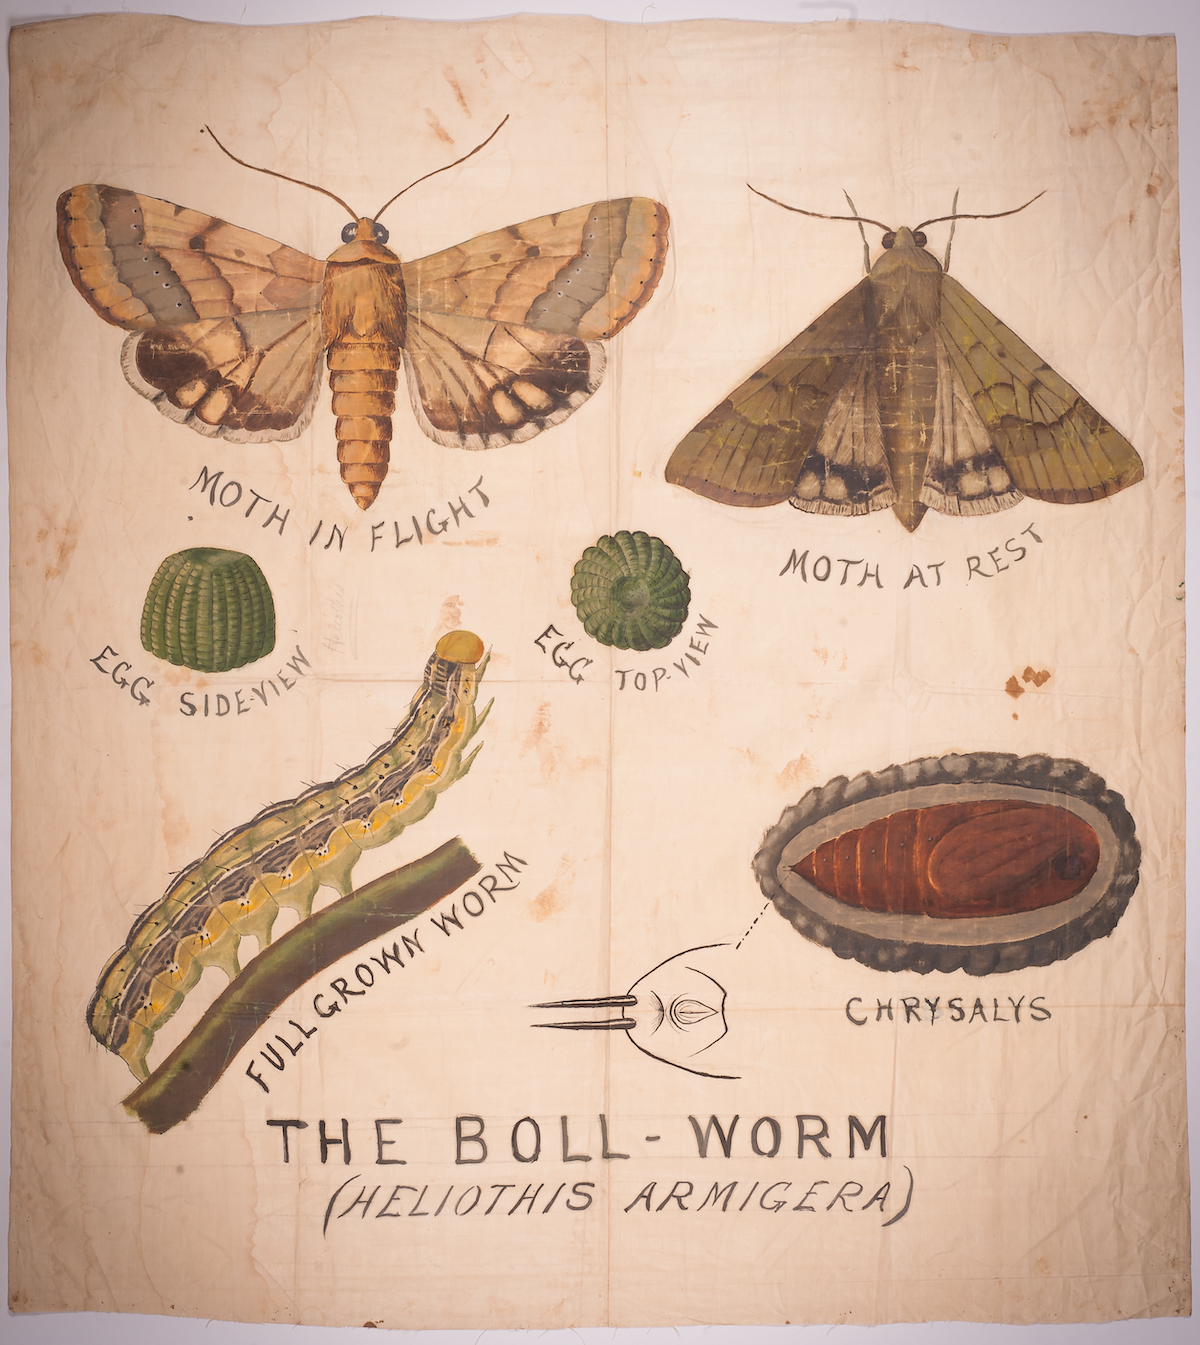 MOTH IN FLIGHT
MOTH AT REST
EGG SIDE-VIEW
EGG TOP-VIEW
FULL GROWN WORM
CHRYSALYS
THE BOLL-WORM
(HELIOTHIS ARMIGERA)